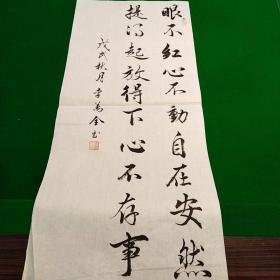 眼不红心不動自在安然
提得起放得下心不存事
戊戌秋月李万全书